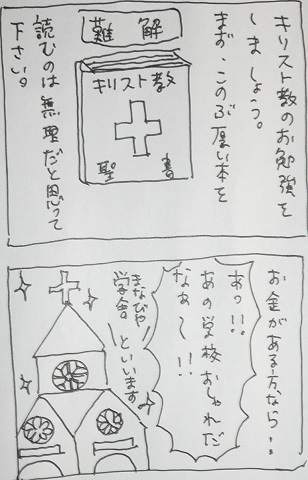 キリスト教のお勉強を
しましょう。
まず、このぶ厚い本を
難解
キリスト教
聖書
読むのは無理だと思って
下さい。
お金がある方なら‥
あっ!!
あの学校おしゃれだ
なぁ〜!!
まなびや
学舎といいます♪